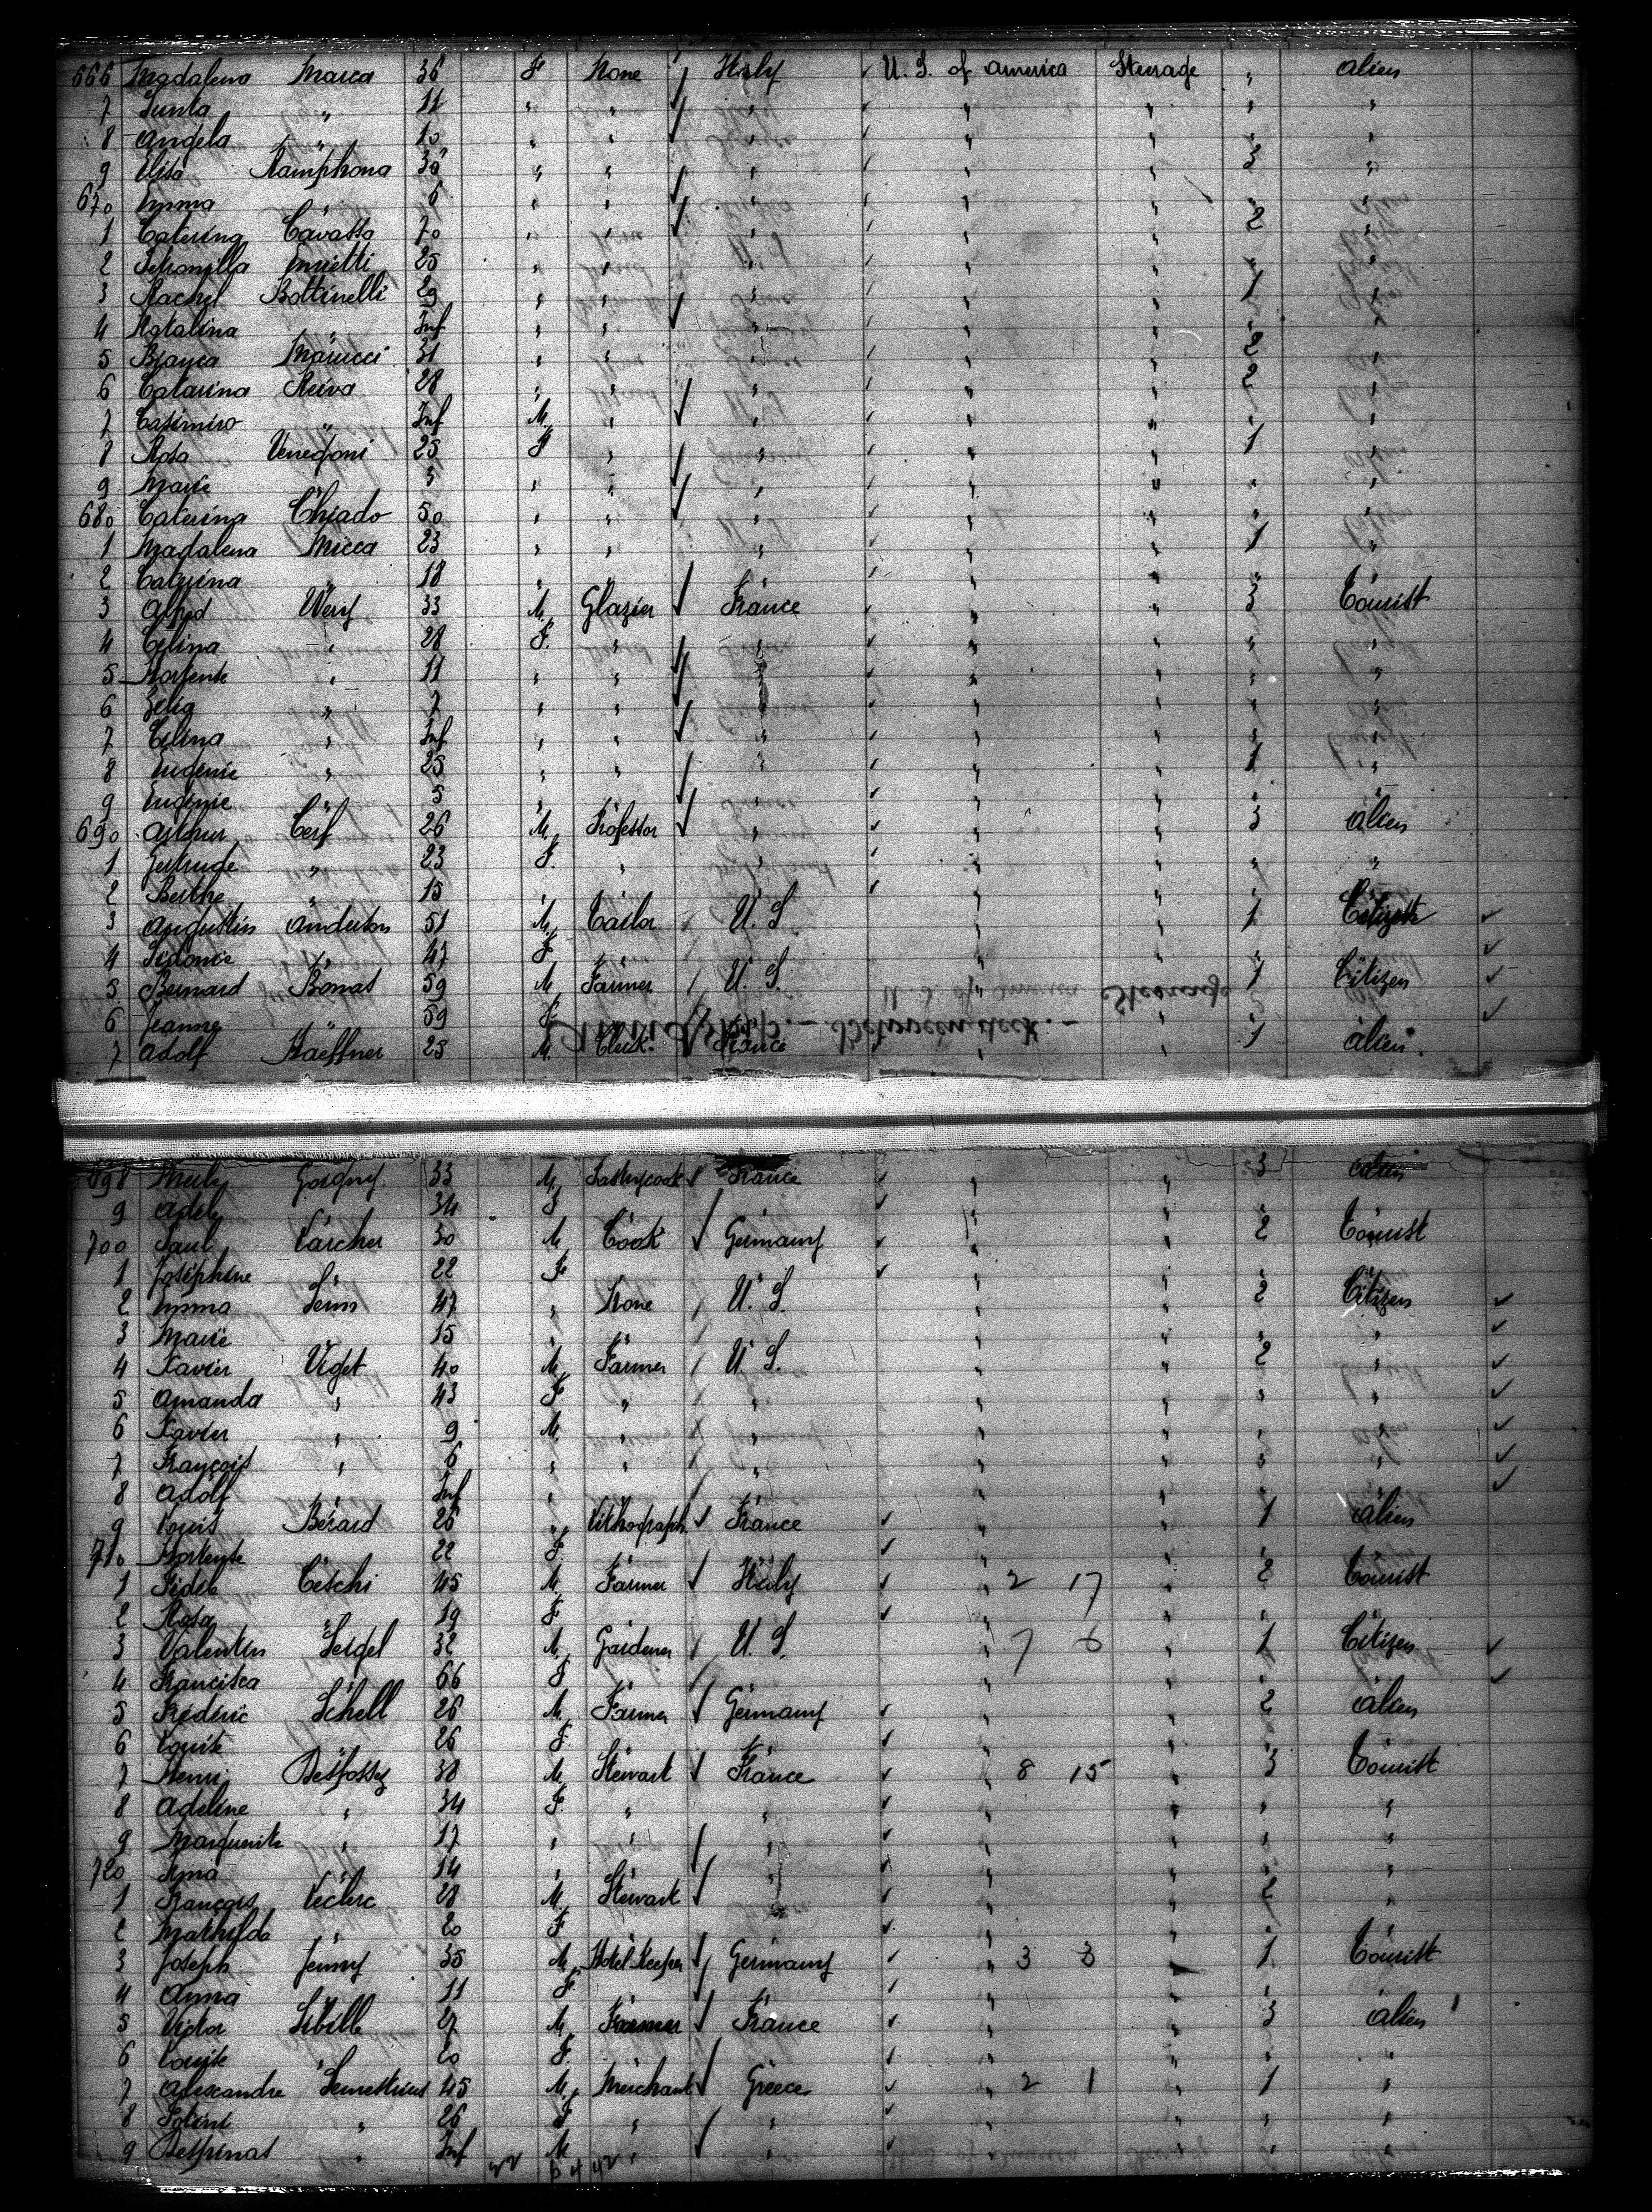 666 Magdalena Marca 36 F None Italy U. S. of America Steerage " alien
7 Junta " 11 " " " " " " "
8 Angela " 10 " " " " " " "
9 Elisa Ramphona 30 " " " " " 3 "
670 Emma " 6 " " " " " " "
1 Caterina Cavasso 70 " " " " " 2 "
2 Petronilla 25 " " " " " " "
3 Rachel Bottinelli 29 " " " " " 1 "
4 Natalina " Inf " " " " " " "
5 Bianca Marucci 31 " " " " " 2 "
6 Catarina Reiva 28 " " " " " 2 "
7 Casimiro " Inf M. " " " " " "
8 Rosa Venegoni 25 F " " " " 1 "
9 Marie " 3 " " " " " " "
680 Caterina Chiado 50 " " " " " " "
1 Madalena Micca 23 " " " " " 1 "
2 Caterina " 18 " " " " " " "
3 Alfred Wery 33 M. Glazier France " " 3 Tourist
4 Celina " 28 F. " " " " " "
5 Hortente " 11 " " " " " " "
6 Zelia " 7 " " " " " " "
7 Celina " Inf " " " " " " "
8 Eugenie " 25 " " " " " 1 "
9 Eugenie " 5 " " " " " " "
690 Arthur Cerf 26 M. Professor " " " 3 alien
1 Gertrude " 23 F. " " " " " "
2 Berthe " 15 " " " " " " "
3 Augustin Anderton 51 M. Tailor U. S. " " 1 Citizen
4 Sidonie " 47 F " " " " " "
5 Bernard Bonnat 59 M. Farmer U. S. " " 1 Citizen
6 Jeanne " 59 F. " " " " " "
7 Adolf Haeffner 25 M. Clerk France " " 1 alien
698 Goigny 33 M. Pastrycook France " " 3 alien
9 Adele " 34 F " " " " " "
700 Paul Larcher 30 M. Cook Germany " " 2 Tourist
1 Josephine " 22 F " " " " " "
2 Emma 47 " None U. S. " " 2 Citizen
3 Marie " 15 " " " " " " "
4 Xavier Viget 40 M. Farmer U. S. " " 2 "
5 Amanda " 43 F. " " " " " "
6 Xavier " 9 M. " " " " " "
7 François " 6 " " " " " " "
8 Adolf " Inf " " " " " " "
9 Louis Bérard 26 " Lithograph France " " 1 alien
710 Hortente " 22 F. " " " " " "
1 Fidele Ceschi 45 M. Farmer Italy " 2 17 " 2 Tourist
2 Rosa " 19 F. " " " " " "
3 Valentin Seigel 32 M. Gardener U. S. 7 6 " 1 Citizen
4 Francisca " 66 F " " " " " "
5 Frédéric Schell 26 M. Farmer Germany " " 2 alien
6 Louise " 26 F. " " " " " "
7 Henri Desfossez 38 M. Stewart France 8 15 " 3 Tourist
8 Adeline " 34 F. " " " " " "
9 Marguerite " 17 " " " " " " "
720 " 14 " " " " " " "
1 François Leclerc 28 M. Stewart " " " 2 "
2 Mathilde " 20 F " " " " " "
3 Joseph Jenny 35 M. Hotel Keeper Germany " 3 3 " 1 Tourist
4 Anna " 11 F. " " " " " "
5 Victor Sibille 27 M. Farmer France " " 3 alien
6 Louise " 20 F. " " " " " "
7 Alexandre Demetrius 45 M. Merchant Greece " 2 1 " 1 "
8 " 26 F " " " " " "
9 Despinas " Inf M " " " " " "